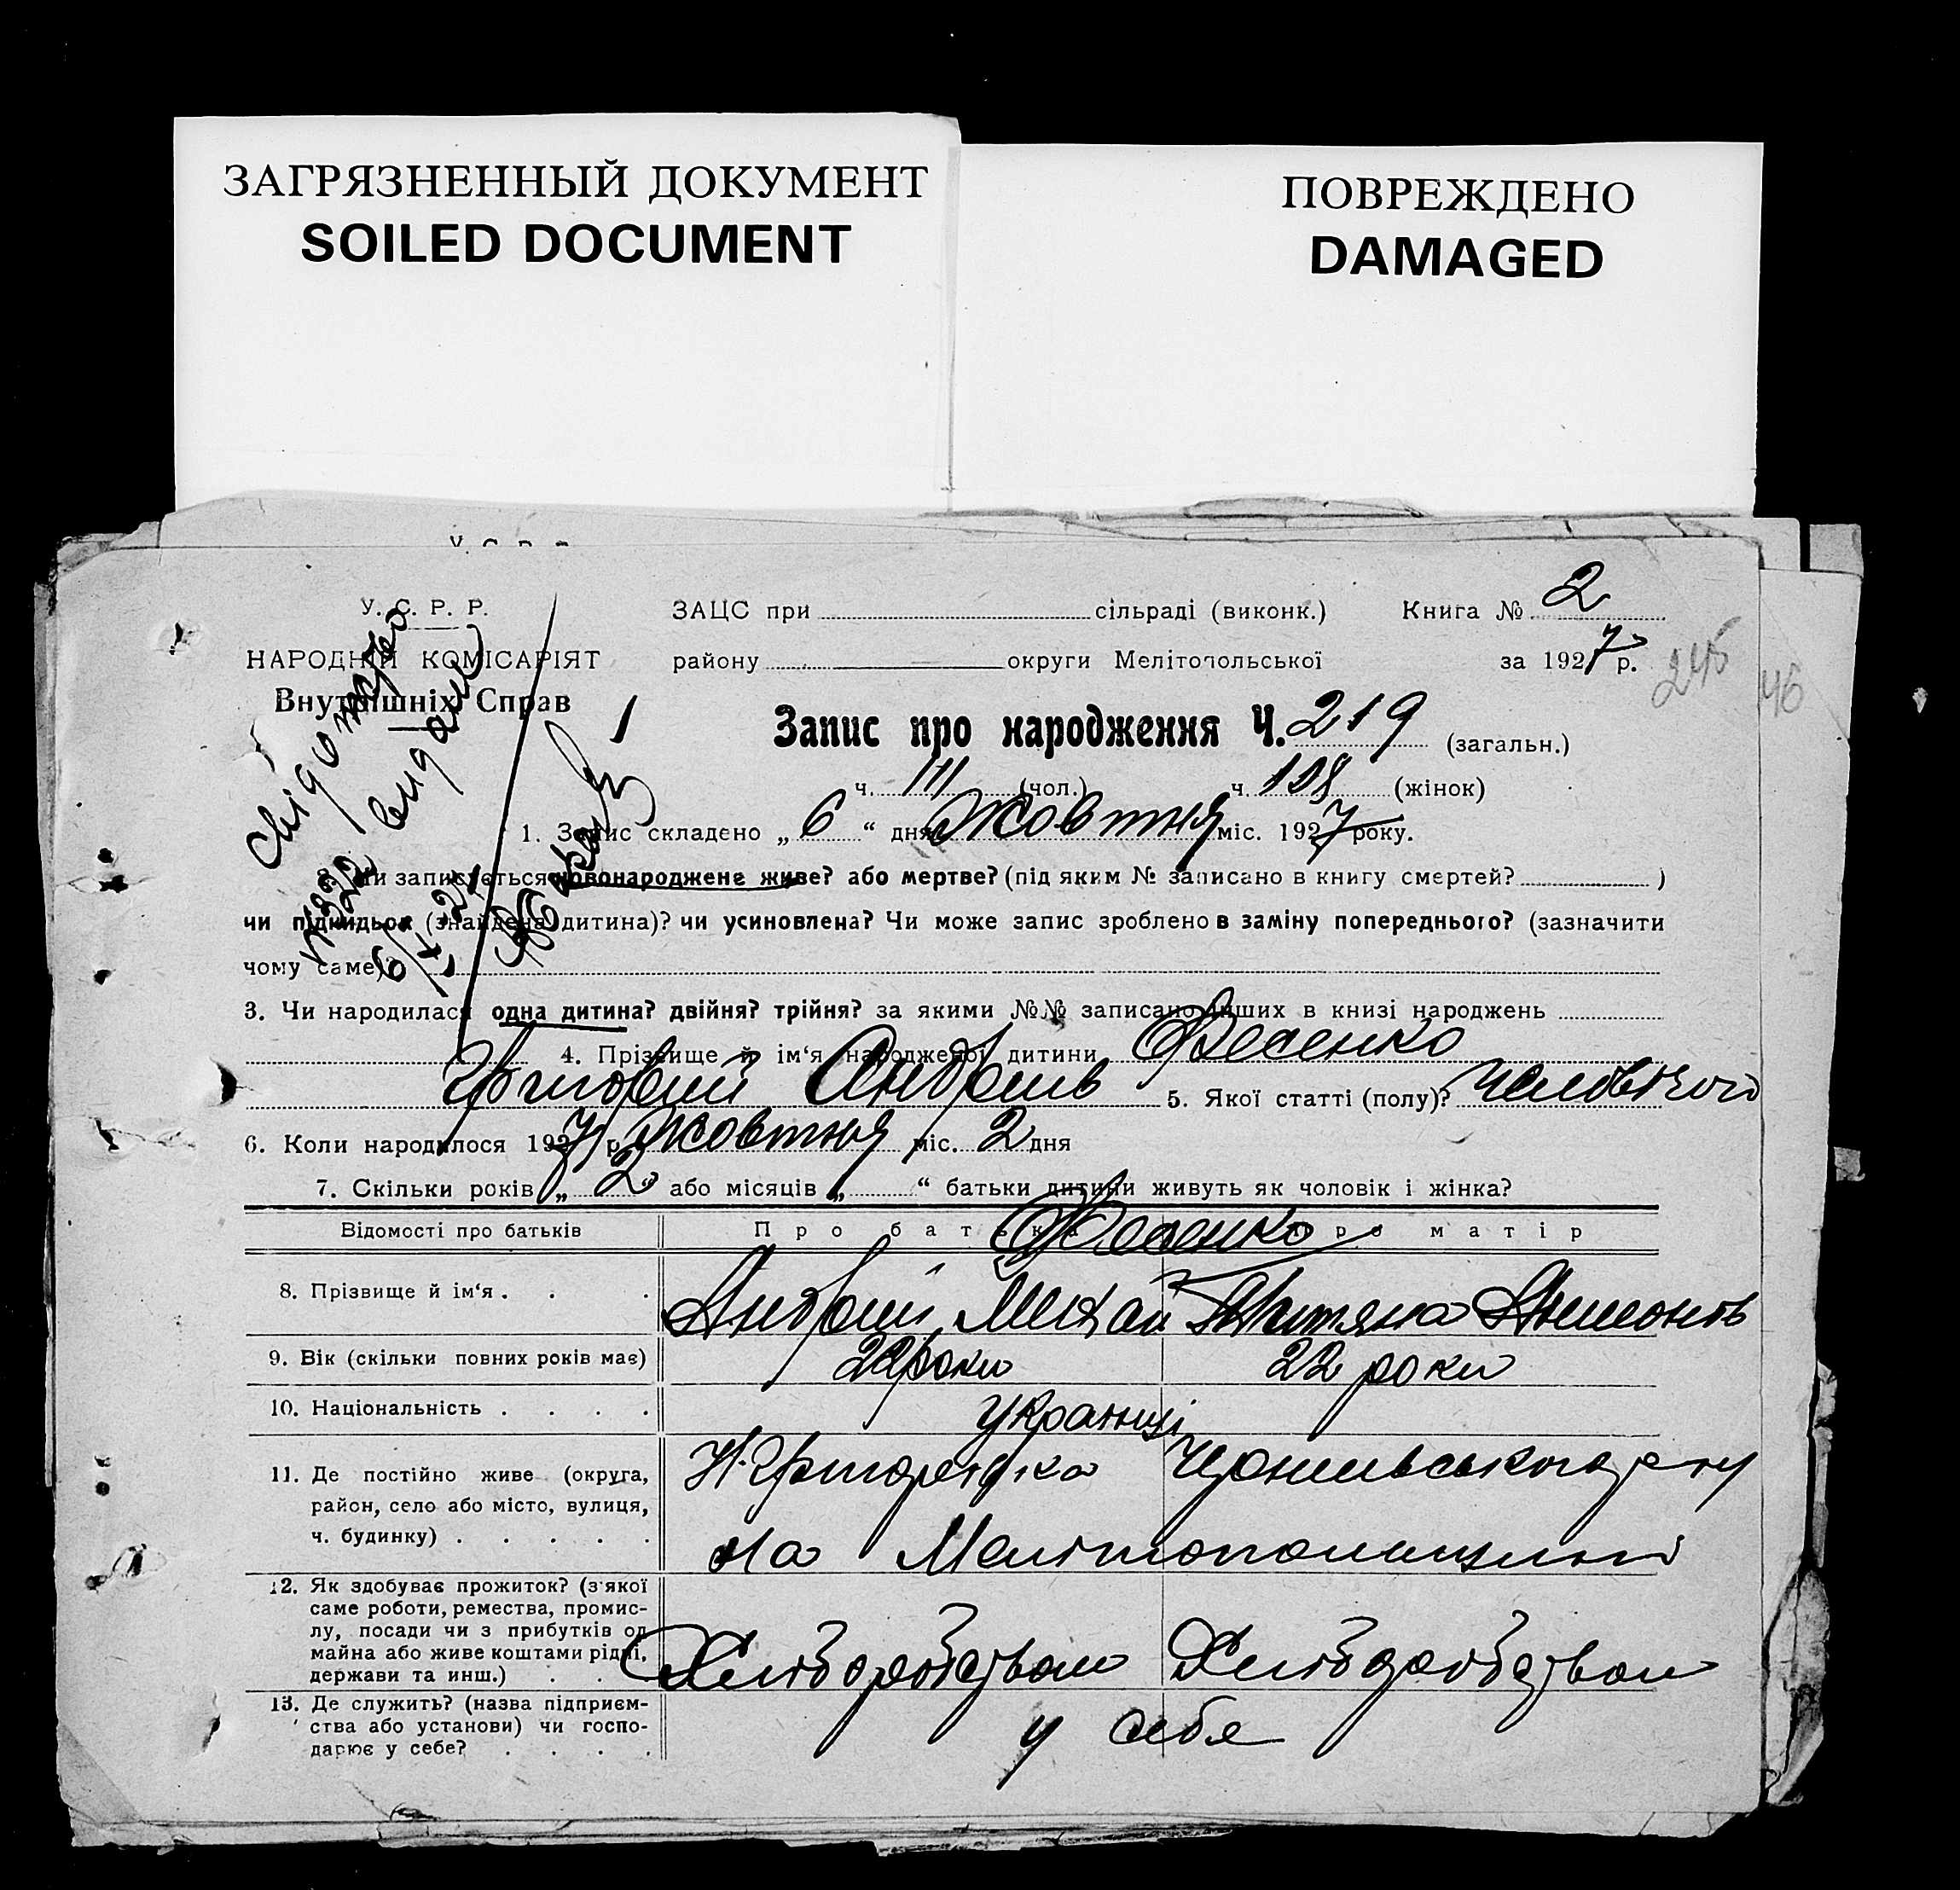 ЗАГРЯЗНЕННЫЙ ДОКУМЕНТ
SOILED DOCUMENT
ПОВРЕЖДЕНО
DAMAGED
У. С. Р. Р.
НАРОДНІЙ КОМІСАРІЯТ
Внутрішніх Справ
ЗАЦС при сільраді (виконк.) Книга № 2
району округи Мелітопольської за 1927 р.
245
46
Запис про народження Ч. 219 (загальн.)
ч. 111 (чол.) ч. 108 (жінок)
видани
1. Запис складено „ 6 “ дня Жовтня міс. 1927 року.
2. Чи записується новонароджене живе? або мертве? (під яким № записано в книгу смертей? )
чи підкидьок (знайдена дитина)? чи усиновлена? Чи може запис зроблено в заміну попереднього? (зазначити
чому саме)
3. Чи народилася одна дитина? двійня? трійня? за якими №№ записано інших в книзі народжень
4. Прізвище й ім‘я народженої дитини Фесенко
Григорий Андреів 5. Якої статті (полу)?
6. Коли народилося 1927 р. Жовтня міс. 2 дня
7. Скільки років „ 2 “ або місяців „ “ батьки дитини живуть як чоловік і жінка?
Відомості про батьків Про батька Про матір
Фесенко
8. Прізвище й ім‘я . . . Андрій Михай
9. Вік (скільки повних років має) 22 роки 22 роки
10. Національність . . . . Українці
11. Де постійно живе (округа,
район, село або місто, вулиця,
ч. будинку) . . . . .
на Мелітопольщині
12. Як здобуває прожиток? (з якої
саме роботи, ремества, промис-
лу, посади чи з прибутків од
майна або живе коштами рідні,
держави та инш.) . . Хліборобством Хліборобством
13. Де служить? (назва підприєм-
ства або установи) чи госпо-
дарює у себе? . . . . у себя